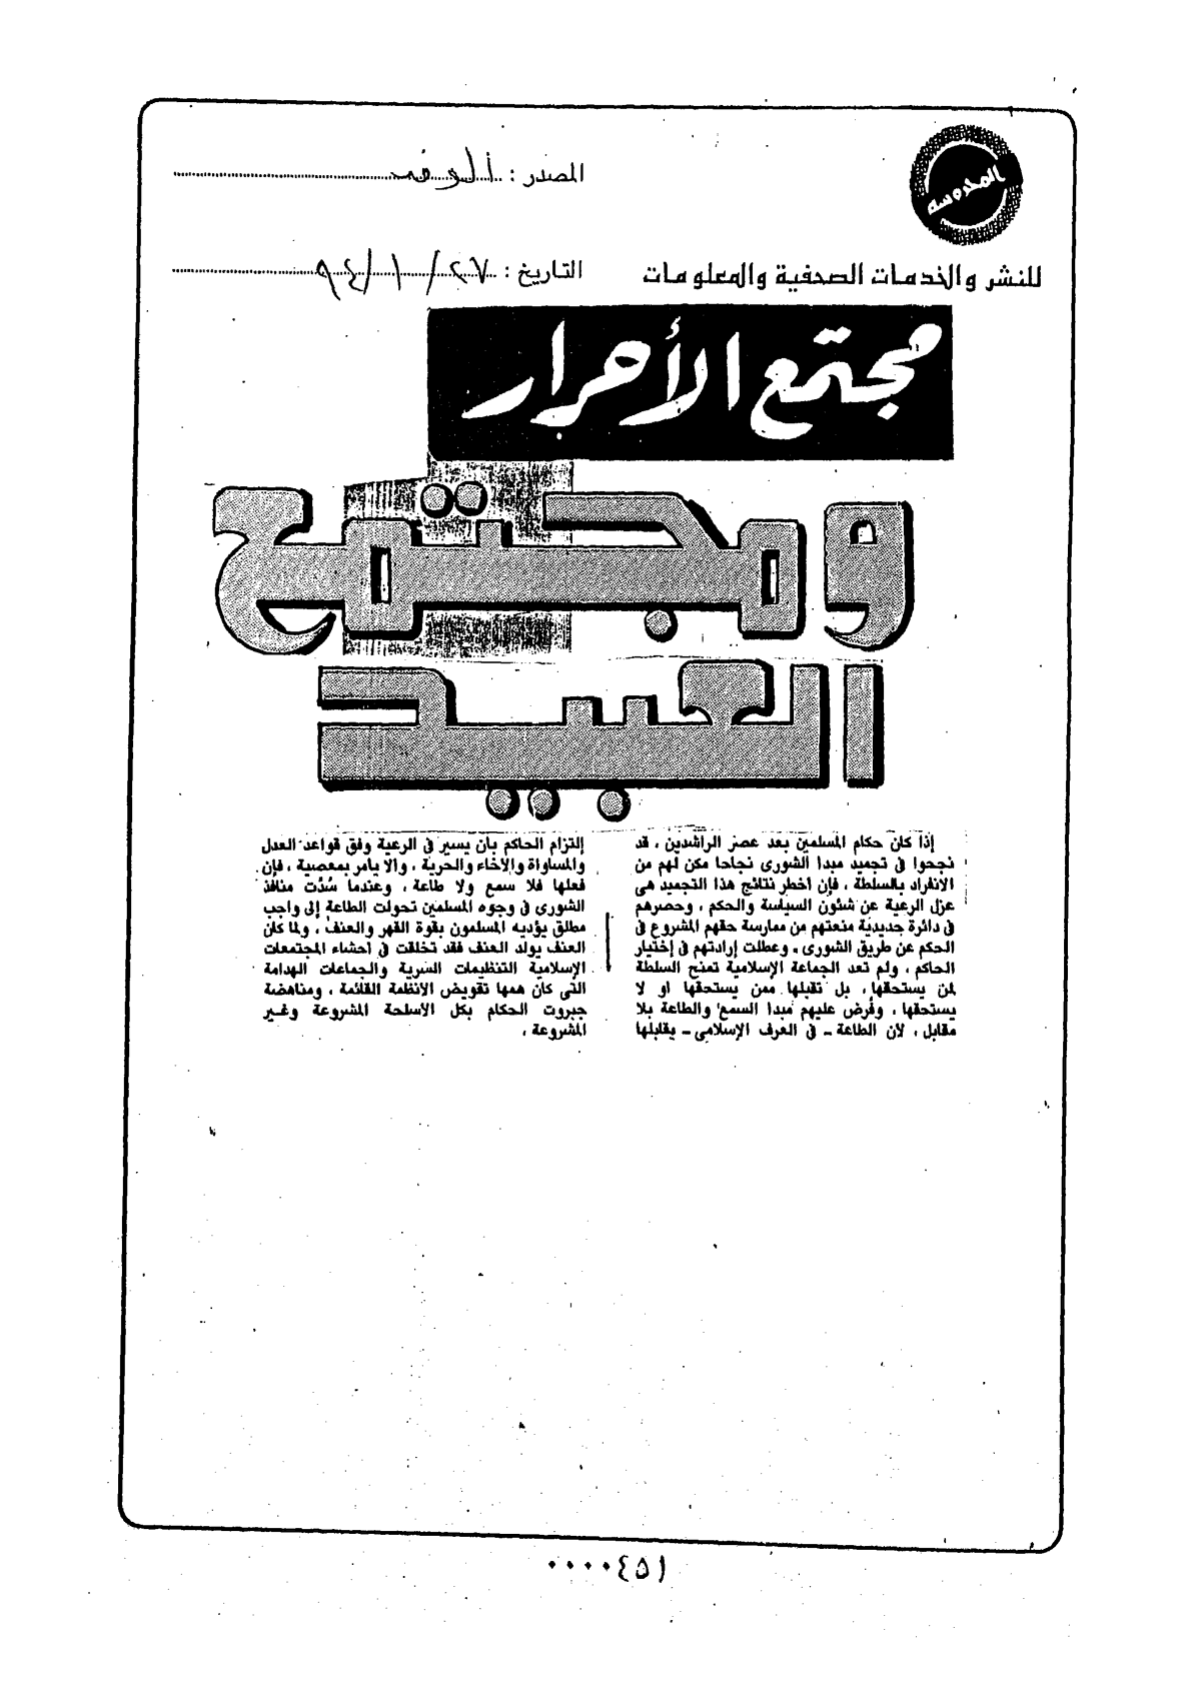 المحروسة
المصدر : الوفد
للنشر والخدمات الصحفية والمعلومات
التاريخ : ٢٧ / ١ / ٩٤
مجتمع الأحرار
ومجتمع
العبيد
إذا كان حكام المسلمين بعد عصر الراشدين ، قد
نجحوا فى تجميد مبدا الشورى نجاحا مكن لهم من
الانفراد بالسلطة ، فإن أخطر نتائج هذا التجميد هى
عزل الرعية عن شئون السياسة والحكم ، وحصرهم
فى دائرة جديدية منعتهم من ممارسة حقهم المشروع فى
الحكم عن طريق الشورى . وعطلت إرادتهم فى إختيار
الحاكم ، ولم تعد الجماعة الإسلامية تمنح السلطة
لمن يستحقها ، بل تقبلها ممن يستحقها او لا
يستحقها ، وفرض عليهم مبدا السمع والطاعة بلا
مقابل ، لأن الطاعة - فى العرف الإسلامى - يقابلها
إلتزام الحاكم بأن يسير فى الرعية وفق قواعد العدل
والمساواة والإخاء والحرية ، والا يامر بمعصية ، فإن
فعلها فلا سمع ولا طاعة ، وعندما سُدَّت منافذ
الشورى فى وجوه المسلمين تحولت الطاعة إلى واجب
مطلق يؤديه المسلمون بقوة القهر والعنف ، ولما كان
العنف يولد العنف فقد تخلقت فى أحشاء المجتمعات
الإسلامية التنظيمات السرية والجماعات الهدامة
التى كان همها تقويض الأنظمة القائمة ، ومناهضة
جبروت الحكام بكل الأسلحة المشروعة وغير
المشروعة ،
٠٠٠٠٤٥١